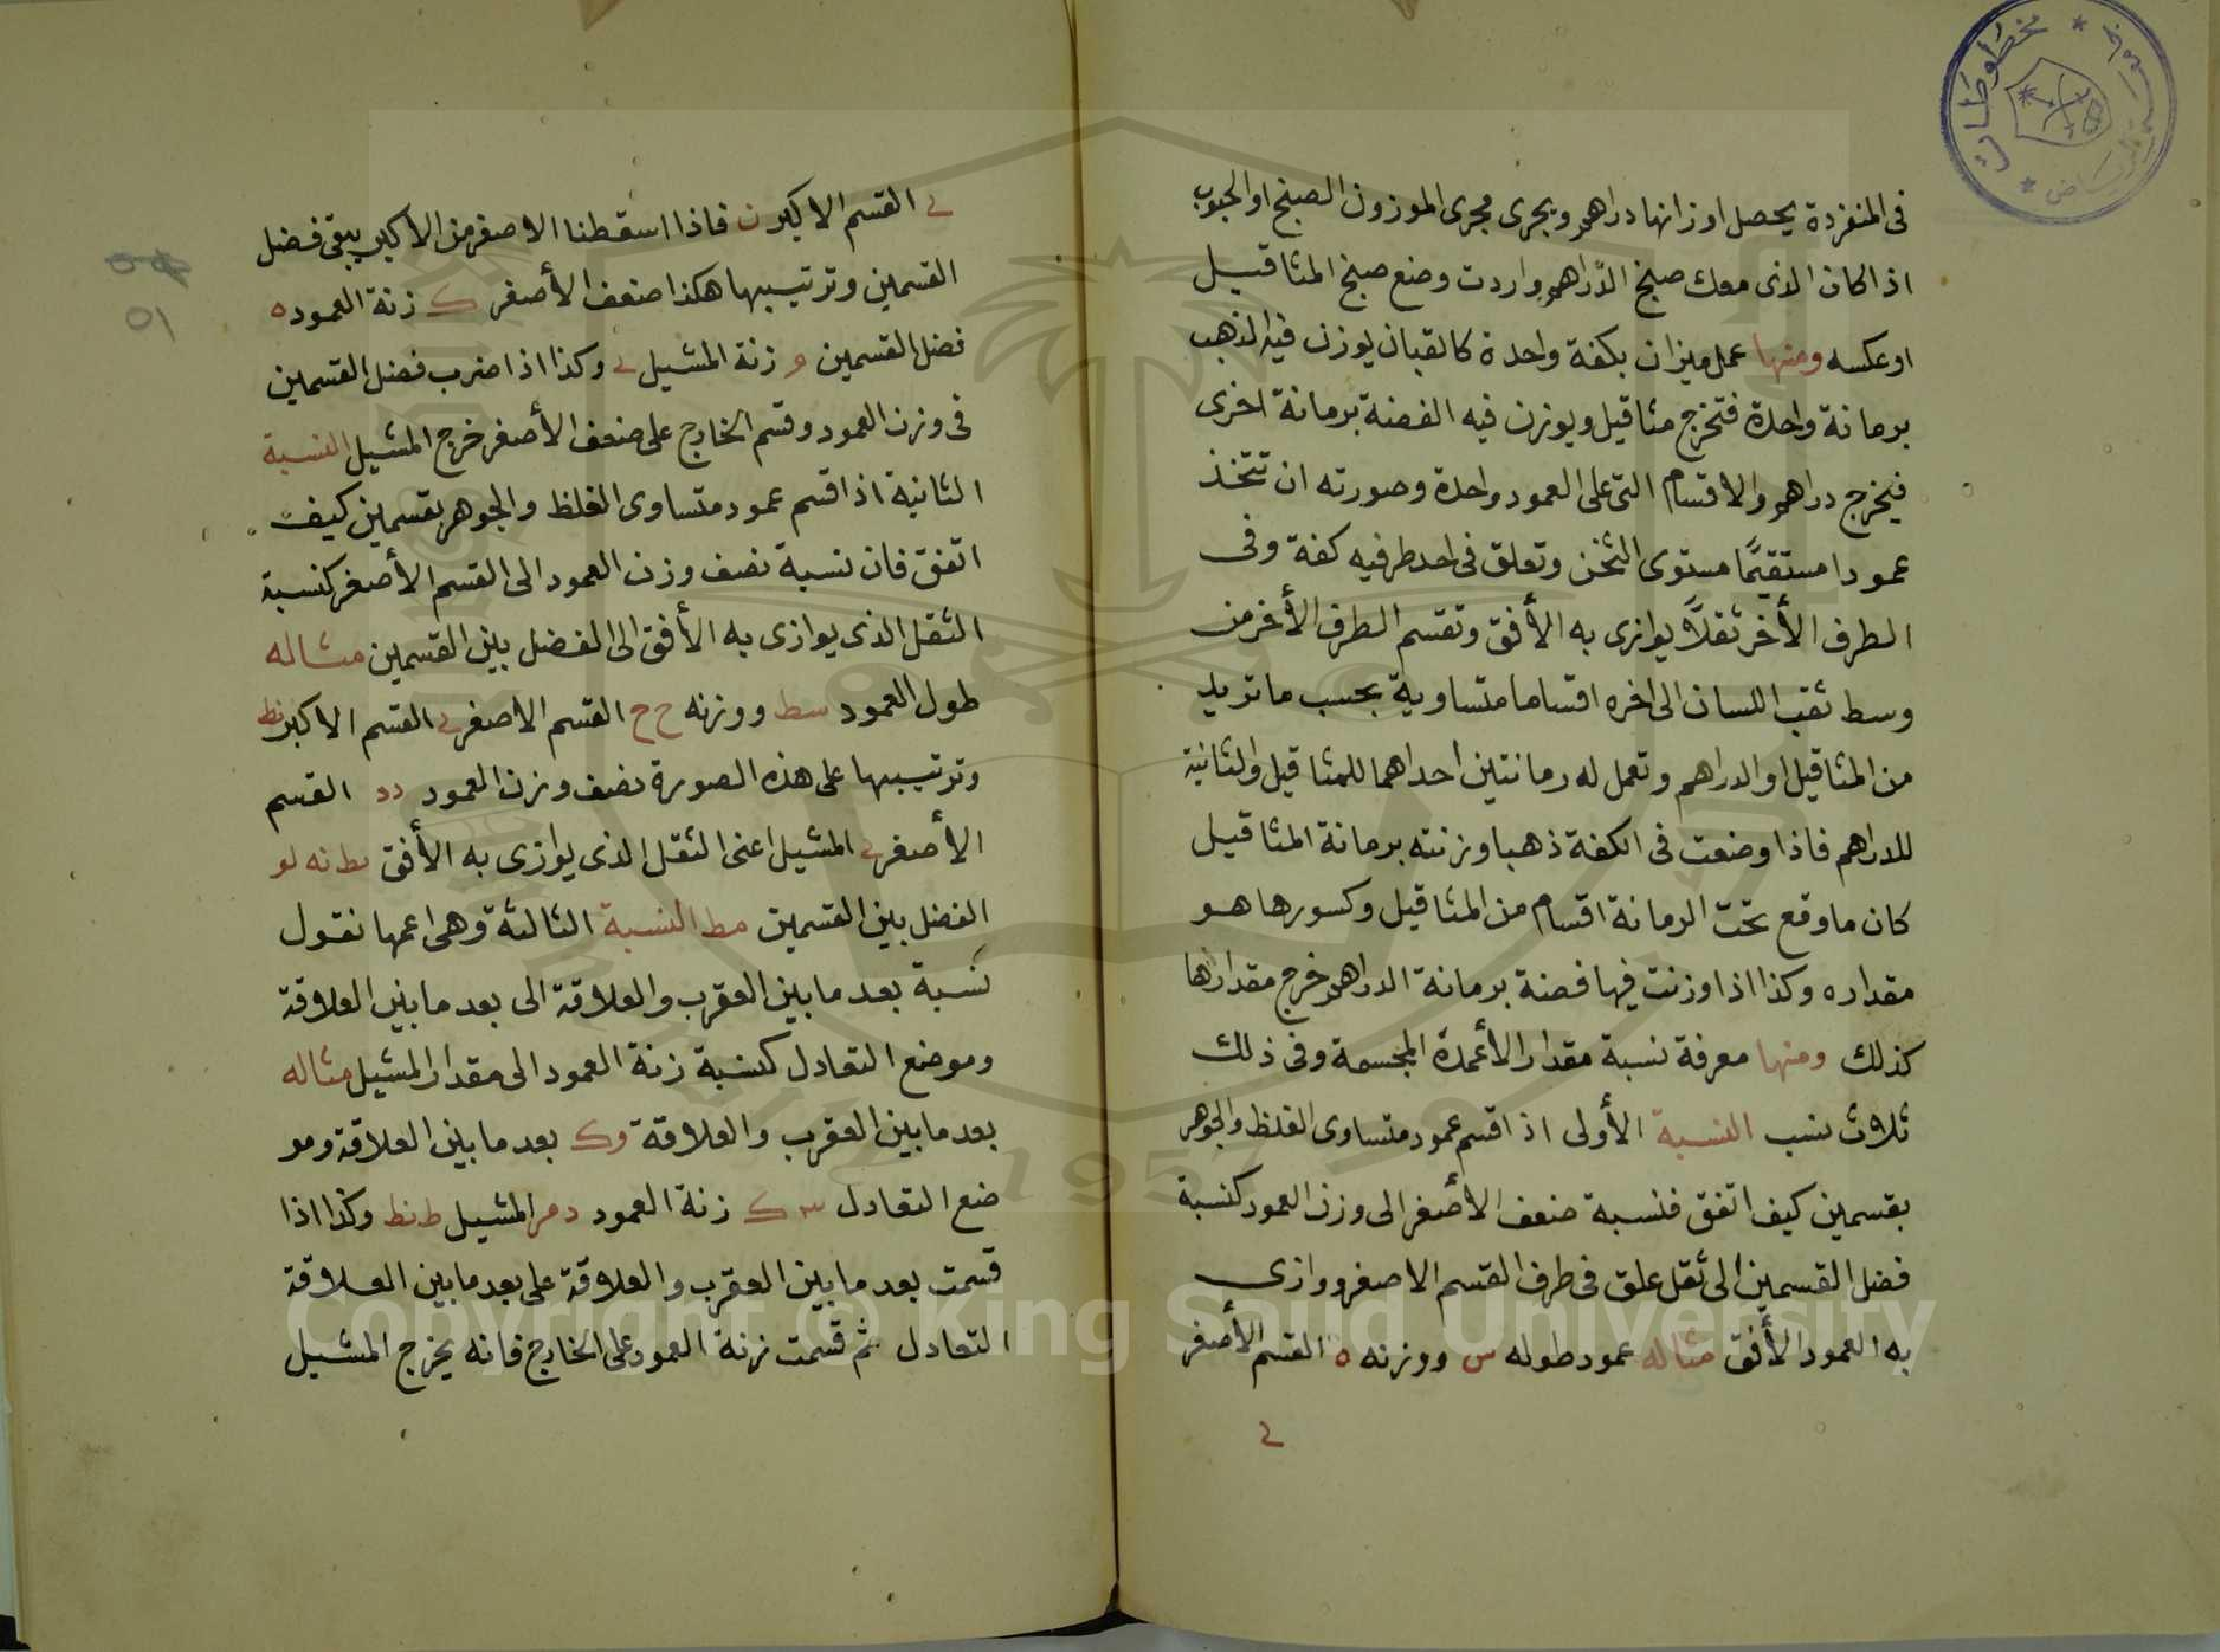 في المنفردة يحصل اوزانها دراهم ويجرى مجرى الموزون الصبخ او الحبوب
اذا كان الذى معك صبخ الدّراهم واردت وضع صبخ المثاقيل
او عكسه ومنها عمل ميزان بكفة واحدة كالقبان يوزن فيه الذهب
برمانة واحدة فتخرج مثاقيل ويوزن فيه الفضة برمانة اخرى
فيخرج دراهم والاقسام التى على العمود واحدة وصورته ان تتخذ
عمودا مستقيمًا مستوى الثخن وتعلق فى احد طرفيه كفة وفى
الطرف الأخر ثقلاً يوازى به الأفق وتقسم الطرف الأخر من
وسط ثقب اللسان الى اخره اقساما متساوية بحسب ما تريد
من المثاقيل او الدراهم وتعمل له رمانتين احداهما للمثاقيل والثانية
للدراهم فاذا وضعت فى الكفة ذهبا وزنته برمانة المثاقيل
كان ما وقع تحت الرمانة اقسام من المثاقيل وكسورها هو
مقداره وكذا اذا وزنت فيها فضة برمانة الدراهم خرج مقدارها
كذلك ومنها معرفة نسبة مقدار الأعمدة المجسمة وفى ذلك
ثلاث نسب النسبة الأولى اذا قسم عمود متساوى الغلظ والجوهر
بقسمين كيف اتفق فنسبة ضعف الأصغر الى وزن العمود كنسبة
فضل القسمين الى ثقل علق فى طرف القسم الاصغر ووازى
به العمود الأفق مثاله عمود طوله س ووزنه ه القسم الأصغر
ى
ى القسم الاكبر ن فاذا اسقطنا الاصغر من الاكبر يبقى فضل
القسمين وترتيبها هكذا ضعف الأصغر ك زنة العمود ه
فضل القسمين م زنة المشيل ى وكذا اذا ضرب فضل القسمين
فى وزن العمود وقسم الخارج على ضعف الأصغر خرج المشيل النسبة
الثانية اذا قسم عمود متساوى الغلظ والجوهر بقسمين كيف
اتفق فان نسبة نصف وزن العمود الى القسم الأصغر كنسبة
الثقل الذى يوازى به الأفق الى الفضل بين القسمين مثاله
طول العمود سط ووزنه ح ح القسم الاصغر ى القسم الاكبر نط
وترتيبها على هذه الصورة نصف وزن العمود دد القسم
الأصغر ى المشيل اعنى الثقل الذى يوازى به الأفق نه لو
الفضل بين القسمين مط النسبة الثالثة وهى اعمها نقول
نسبة بعد ما بين العقرب والعلاقة الى بعد ما بين العلاقة
وموضع التعادل كنسبة زنة العمود الى مقدار المشيل مثاله
بعد ما بين العقرب والعلاقة وك بعد ما بين العلاقة ومو
ضع التعادل ك زنة العمود المشيل ط نط وكذا اذا
قسمت بعد ما بين العقرب والعلاقة على بعد ما بين العلاقة
التعادل ثم قسمت زنة العمود على الخارج فانه يخرج المشيل
٥١
مخطوطات
Copyright © King Saud University
1957